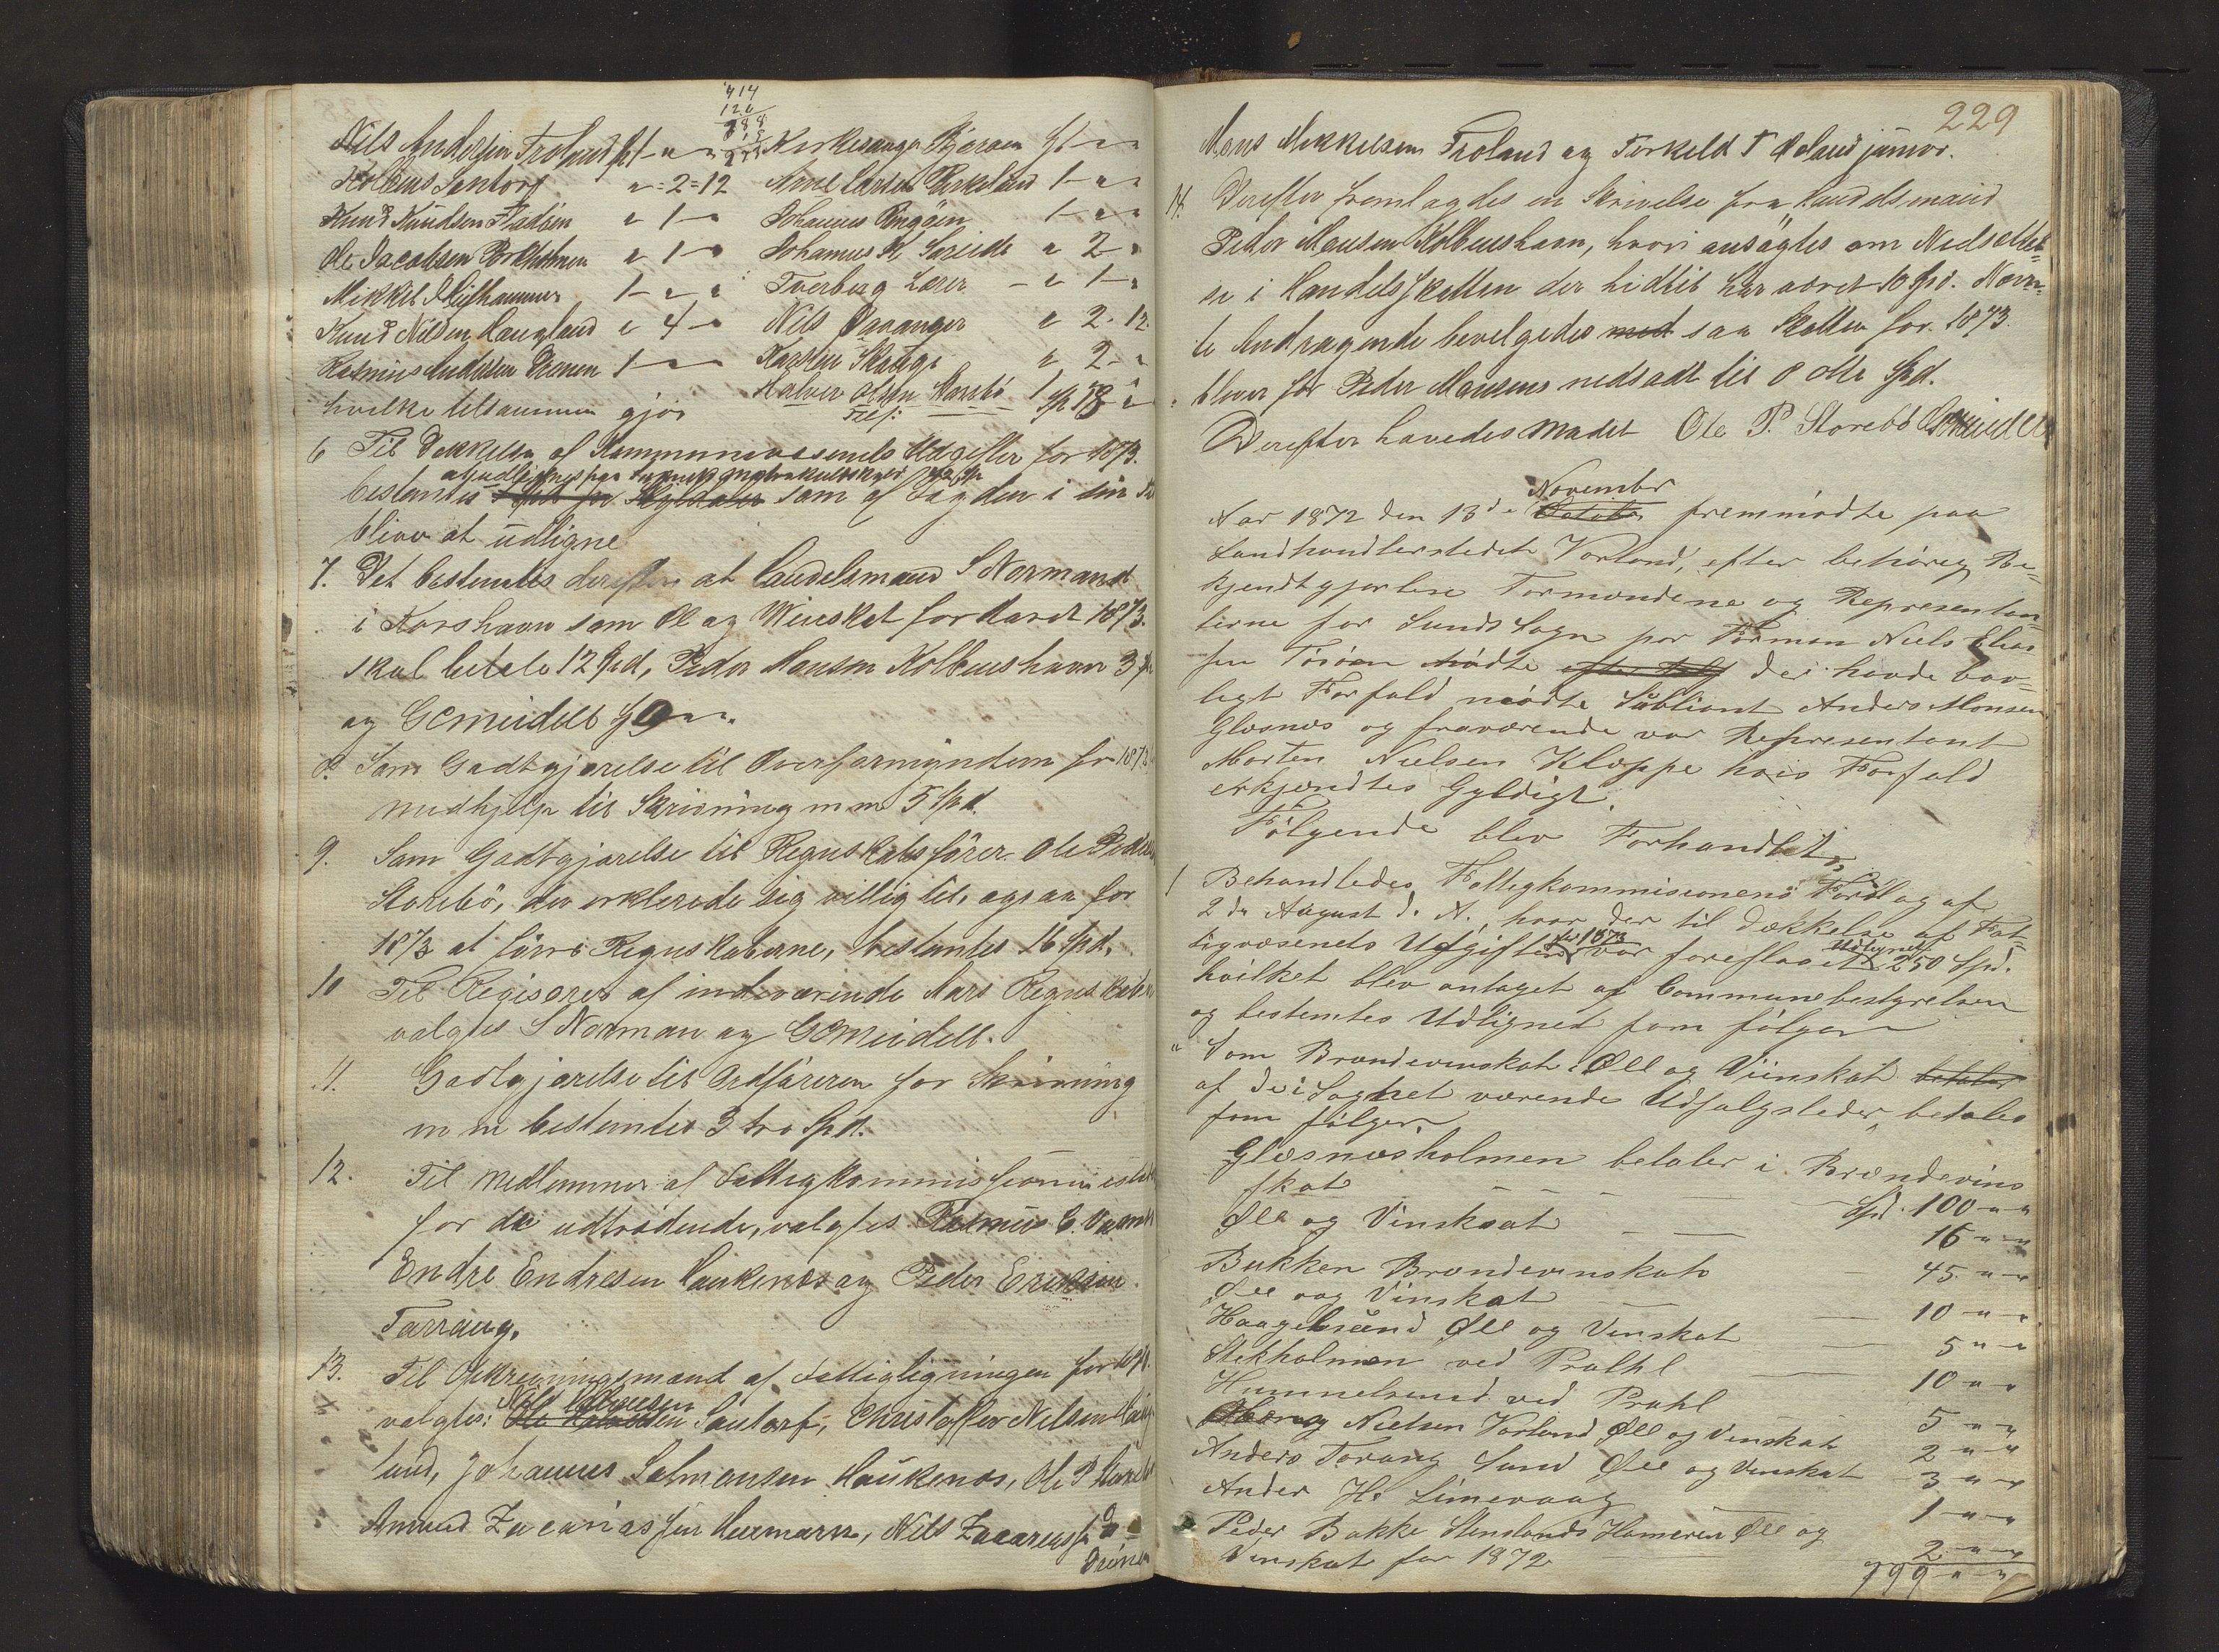 414
126
288
Nils Andersen Troland 1 - " - "
Kolbens Santorf " = 2 = 12
Knud Knudsen Fladøen " 1 - "
Ole Jacobsen Porkholmen " 1 - "
Mikkel 1 - " - "
Knud Nilsen Haugland " 4 - "
Rasmus Andersen Drønen 1 - "
hvilke tilsammen gjør
Kirkesanger Bjøroen 1 - "
Arne Larsen Birkeland 1 - " "
Johannes Ringøen 1 - " "
Johannes H Søreide " 2 "
Tverberg Lærer - " 1 - "
Nils Pavanger " 2 - 12
Karsten Skauge " 2 - "
Halvor Olsen Møsbø 1
6 Til Dækkelse af Kommunevæsenets Udgifter for 1873.
bestemtes som af Fogden i sin
bliver at udligne
7. Det bestemtes derefter at Landelsmand S Normand
i Korshavn som Øl og Vinskat for Aaret 1873.
skal betale 12 Spd, Peder Monsen Kolbenshavn 3
og G Cmeidell
8. Som Godtgjørelse til Overformynderen for 1873
medhjelp til Skrivning m m 5 Spd.
9. Som Godtgjørelse til Regnskabsfører Ole Peders
Storebø, der erklærede sig villig til, ogsaa for
1873 at føre Regnskaberne, bestemtes 16 Spd.
10 Til Revisorer af indeværende Aars Regnskaber
valgtes S Norman og G Cmeidell.
11. Godtgjørelse til Ordføreren for Skrivning
m m bestemtes 3 tre Spd.
12. Til Medlemmer af Fattigkommissionen istedet
for de udtrædende, valgtes Rasmus C.
Endre Endresen Haukenes og Peder Eriksen
Tarrang.
13. Til Opkrævningsmænd af Fattigligningen for
Nils
valgtes: Santorf, Christoffer Nilsen Haug
land, Johannes Salmonsen Haukenes, Ole P Storebø
Amund Zacariassen Hermarn, Nils Zacariass
Drønen
229
Mons Mikkelsen Troland og Torkild T Øvland junior.
14. Derefter fremlagdes en Skrivelse fra Landdsmand
Peder Monsen Kolbenshavn, hvori ansøgtes om Nedsættel=
se i Handelsskatten der hidtil har været 10 Spd. Nævn=
te Andragende bevilgedes med saa Skatten for 1873.
bliver for Peder Monsens nedsadt til 8 otte Spd.
Derefter hævedes Mødet Ole P. Storebø GCMeidell
November
Aar 1872 den 13de October fremmødte paa
Landhandlerstedet Vorland, efter behørig Be=
kjendtgjørlese Formændene og Representan=
terne for Sunds Sogn for Forman Niels Elias
sen Torøen mødte der havde lov=
ligt Forfald mødte Subliant Anders Monsen
Glesnes og fraværende var Representant
Morten Nielsen Kleppe hvis Forfald
erkjendtes Gyldigt.
Følgende blev Forhandlet:
1 Behandledes Fattigkommisionens Forslag af
2de August d. A., hvor der til Dækkelse af Fat=
for 1873 Udlignet
tigvæsenets Udgifter var foreslaaet 250 Spd.
hvilket blev antaget af Communebestyrelsen
og bestemtes Udlignet som følger
" Som Brændevinskat Øll og Viinskat betaler
af de i Sognet værende Udsalgsteder, betales
som følger.
Glesnesholmen betaler i Brændevins
skat - - - - Spd. 100 - " "
Øll og Vinskaat - - 16 " - "
Bukken Brændevinskat 45 - " - "
Øll og Vinskat - 10 - " - "
Haagelsund Øll og Vinskat - 5 " - "
Stekholmen ved Prahl - 10 - " "
Hummelsund ved Prahl 5 - " "
Nielsen Vorland Øll og Vinskat 2 - " "
Anders Torang Sund Øll og Vinskat 3 - " - "
Ander Hs Limevaag 1 - " - "
Peder Bakke Stenslands Hameren Øll og
Vinskat for 1872 - 2 - " - "
199 - " - "